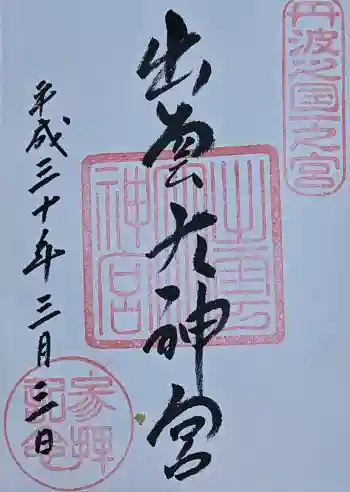 丹波之國一之宮
出雲大神宮
出雲大神宮
平成三十年三月三日
参拝記念